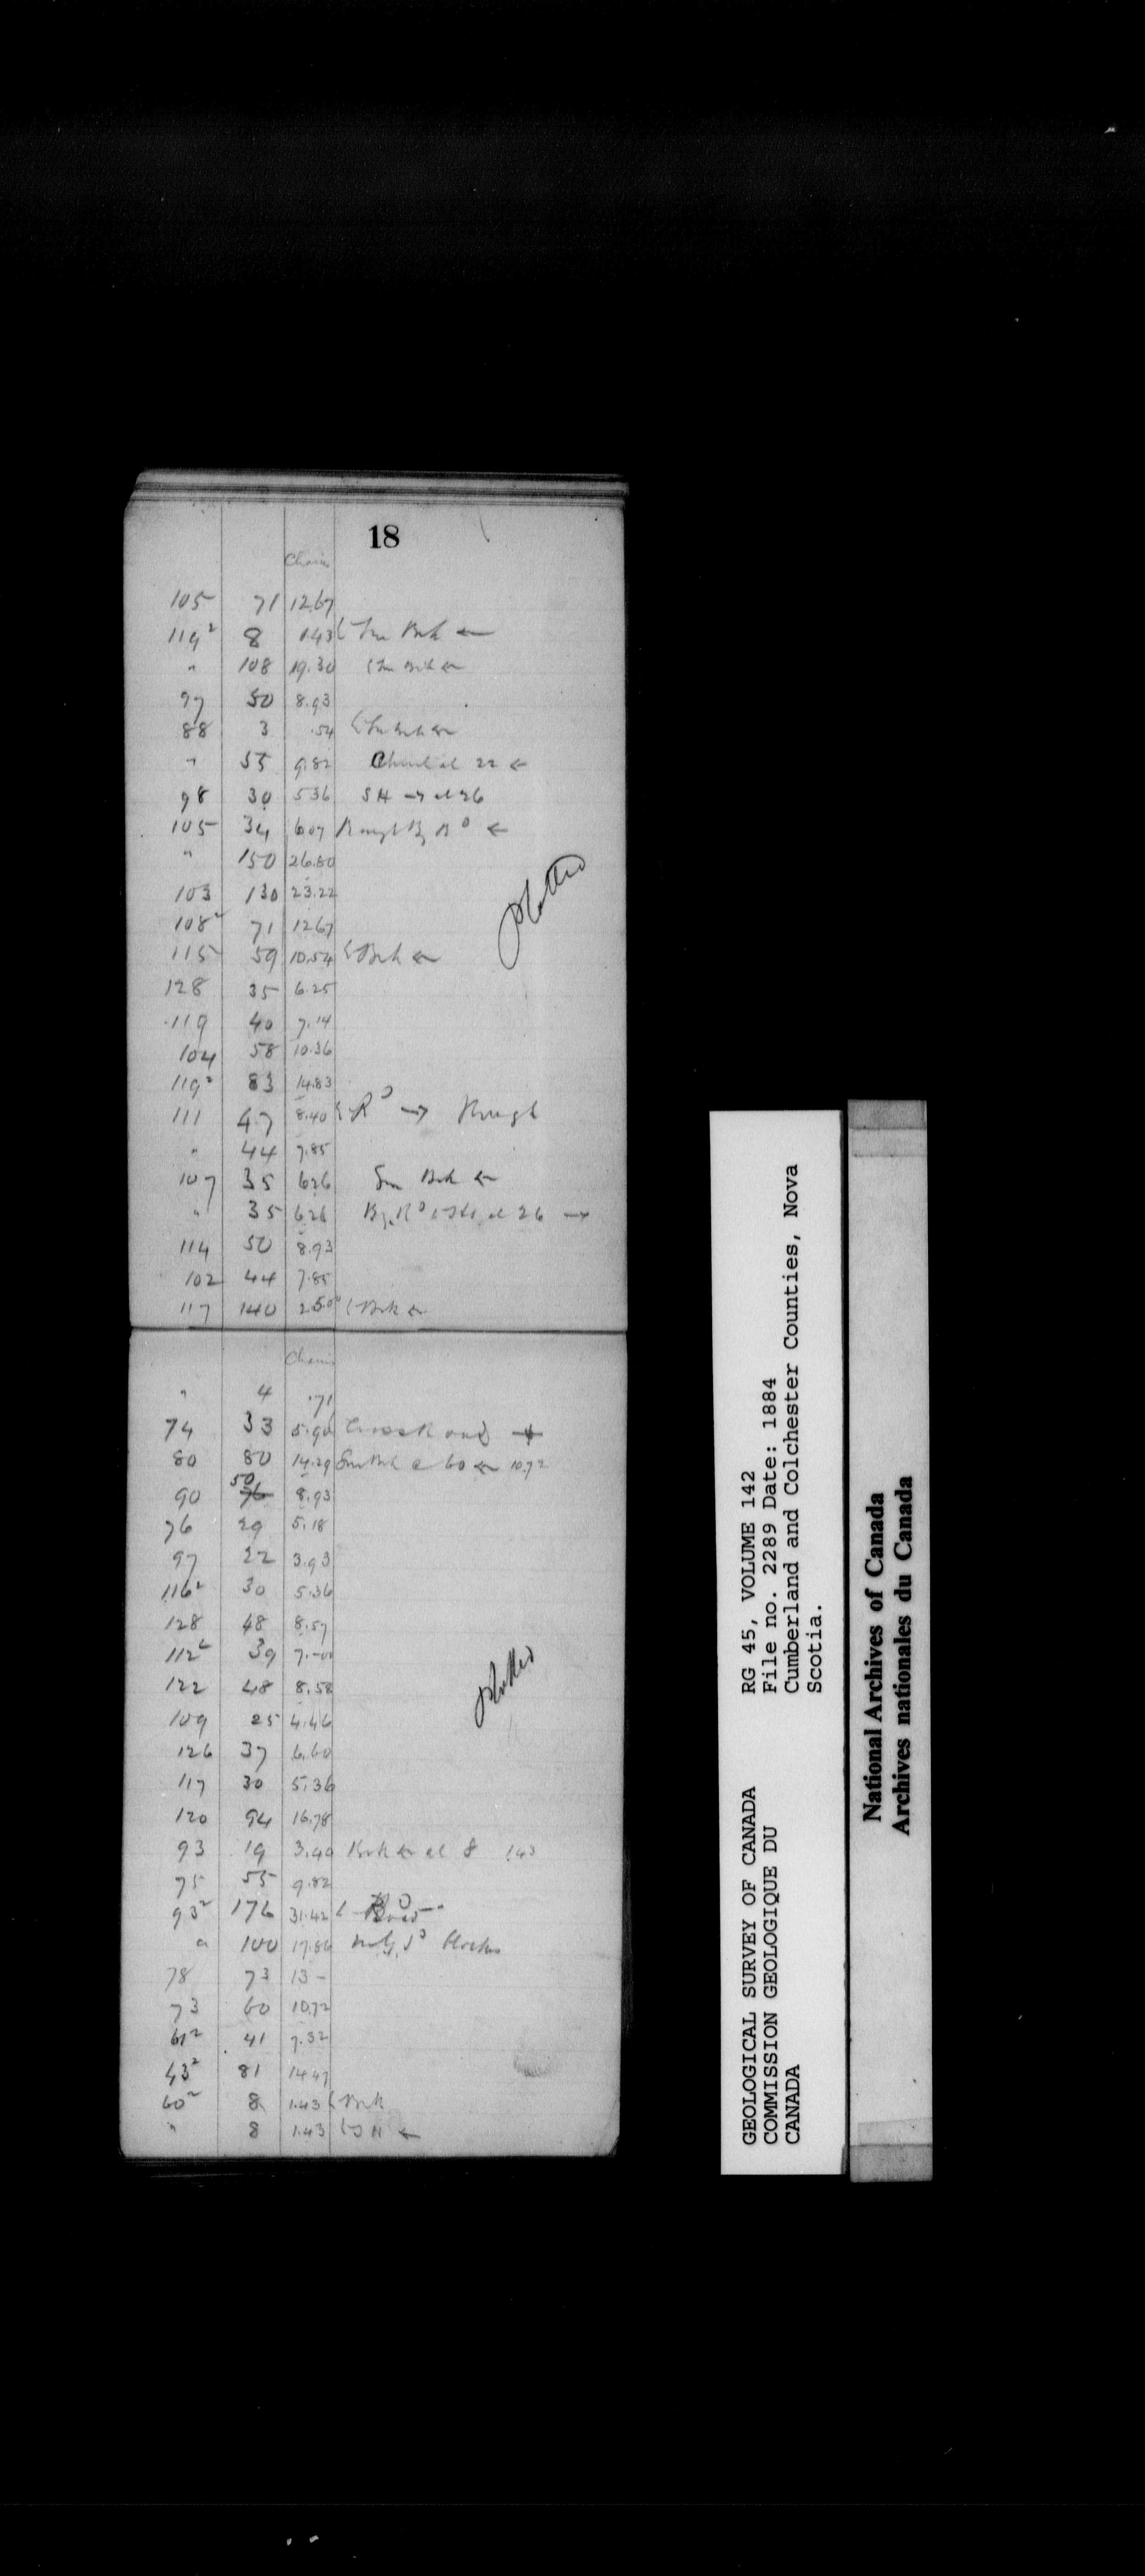 18
Chains
105 71 12.67
119² 8 1.43 Sm Brk ←
" 108 19.30 Sm Brk ←
97 50 8.93
88 3 .54 Sm Brk ←
" 55 9.82 Church at 22 ←
98 30 5.36 SH → at 26
105 34 6.07 ←
" 150 26.80
103 130 23.22
108² 71 12.67
115 59 10.54 Brk ←
128 35 6.25
119 40 7.14
104 58 10.36
119² 83 14.83
111 47 8.40 Rd → Rough
" 44 7.85
107 35 6.26 Sm Brk ←
" 35 6.26 at 26 →
114 50 8.93
102 44 7.85
117 140 25.00 Brk ←
Plotted
Chains
" 4 .71
74 33 5.90 Cross Road
80 80 14.29 Sm Brk @ 60 ← 10.72
90 50 8.93
76 29 5.18
97 22 3.93
116² 30 5.36
128 48 8.57
112² 39 7.00
122 48 8.58
109 25 4.46
126 37 6.60
117 30 5.36
120 94 16.78
93 19 3.40 Brk ← at 8 1.43
75 55 9.82
93² 176 31.42 Road
" 100 17.86
78 73 13 -
73 60 10.72
61² 41 7.32
43² 81 14.47
60² 8 1.43 Brk
" 8 1.43 ←
Plotted
GEOLOGICAL SURVEY OF CANADA
COMMISSION GEOLOGIQUE DU
CANADA
RG 45, VOLUME 142
File no. 2289 Date: 1884
Cumberland and Colchester Counties, Nova
Scotia.
National Archives of Canada
Archives nationales du Canada